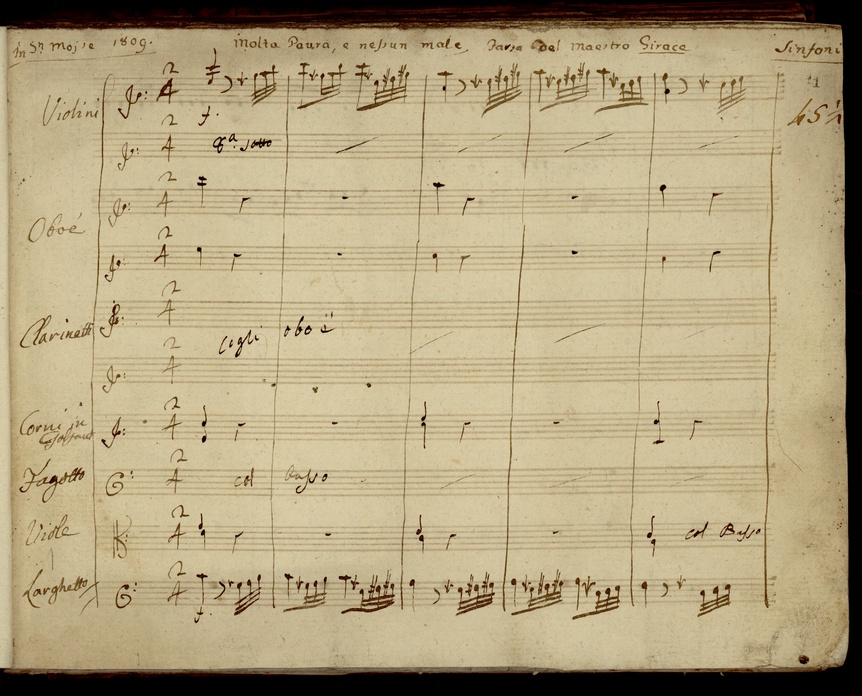 In Sn Mosie 1809. molta Paura, e nessun male, Farsa del maestro Girace Sinfoni
Violini
f.
8ª sotto
Oboè
Clarinetti
Cogli oboè
Corni in
Fagotto col Basso
Viole col Basso
Larghetto
f